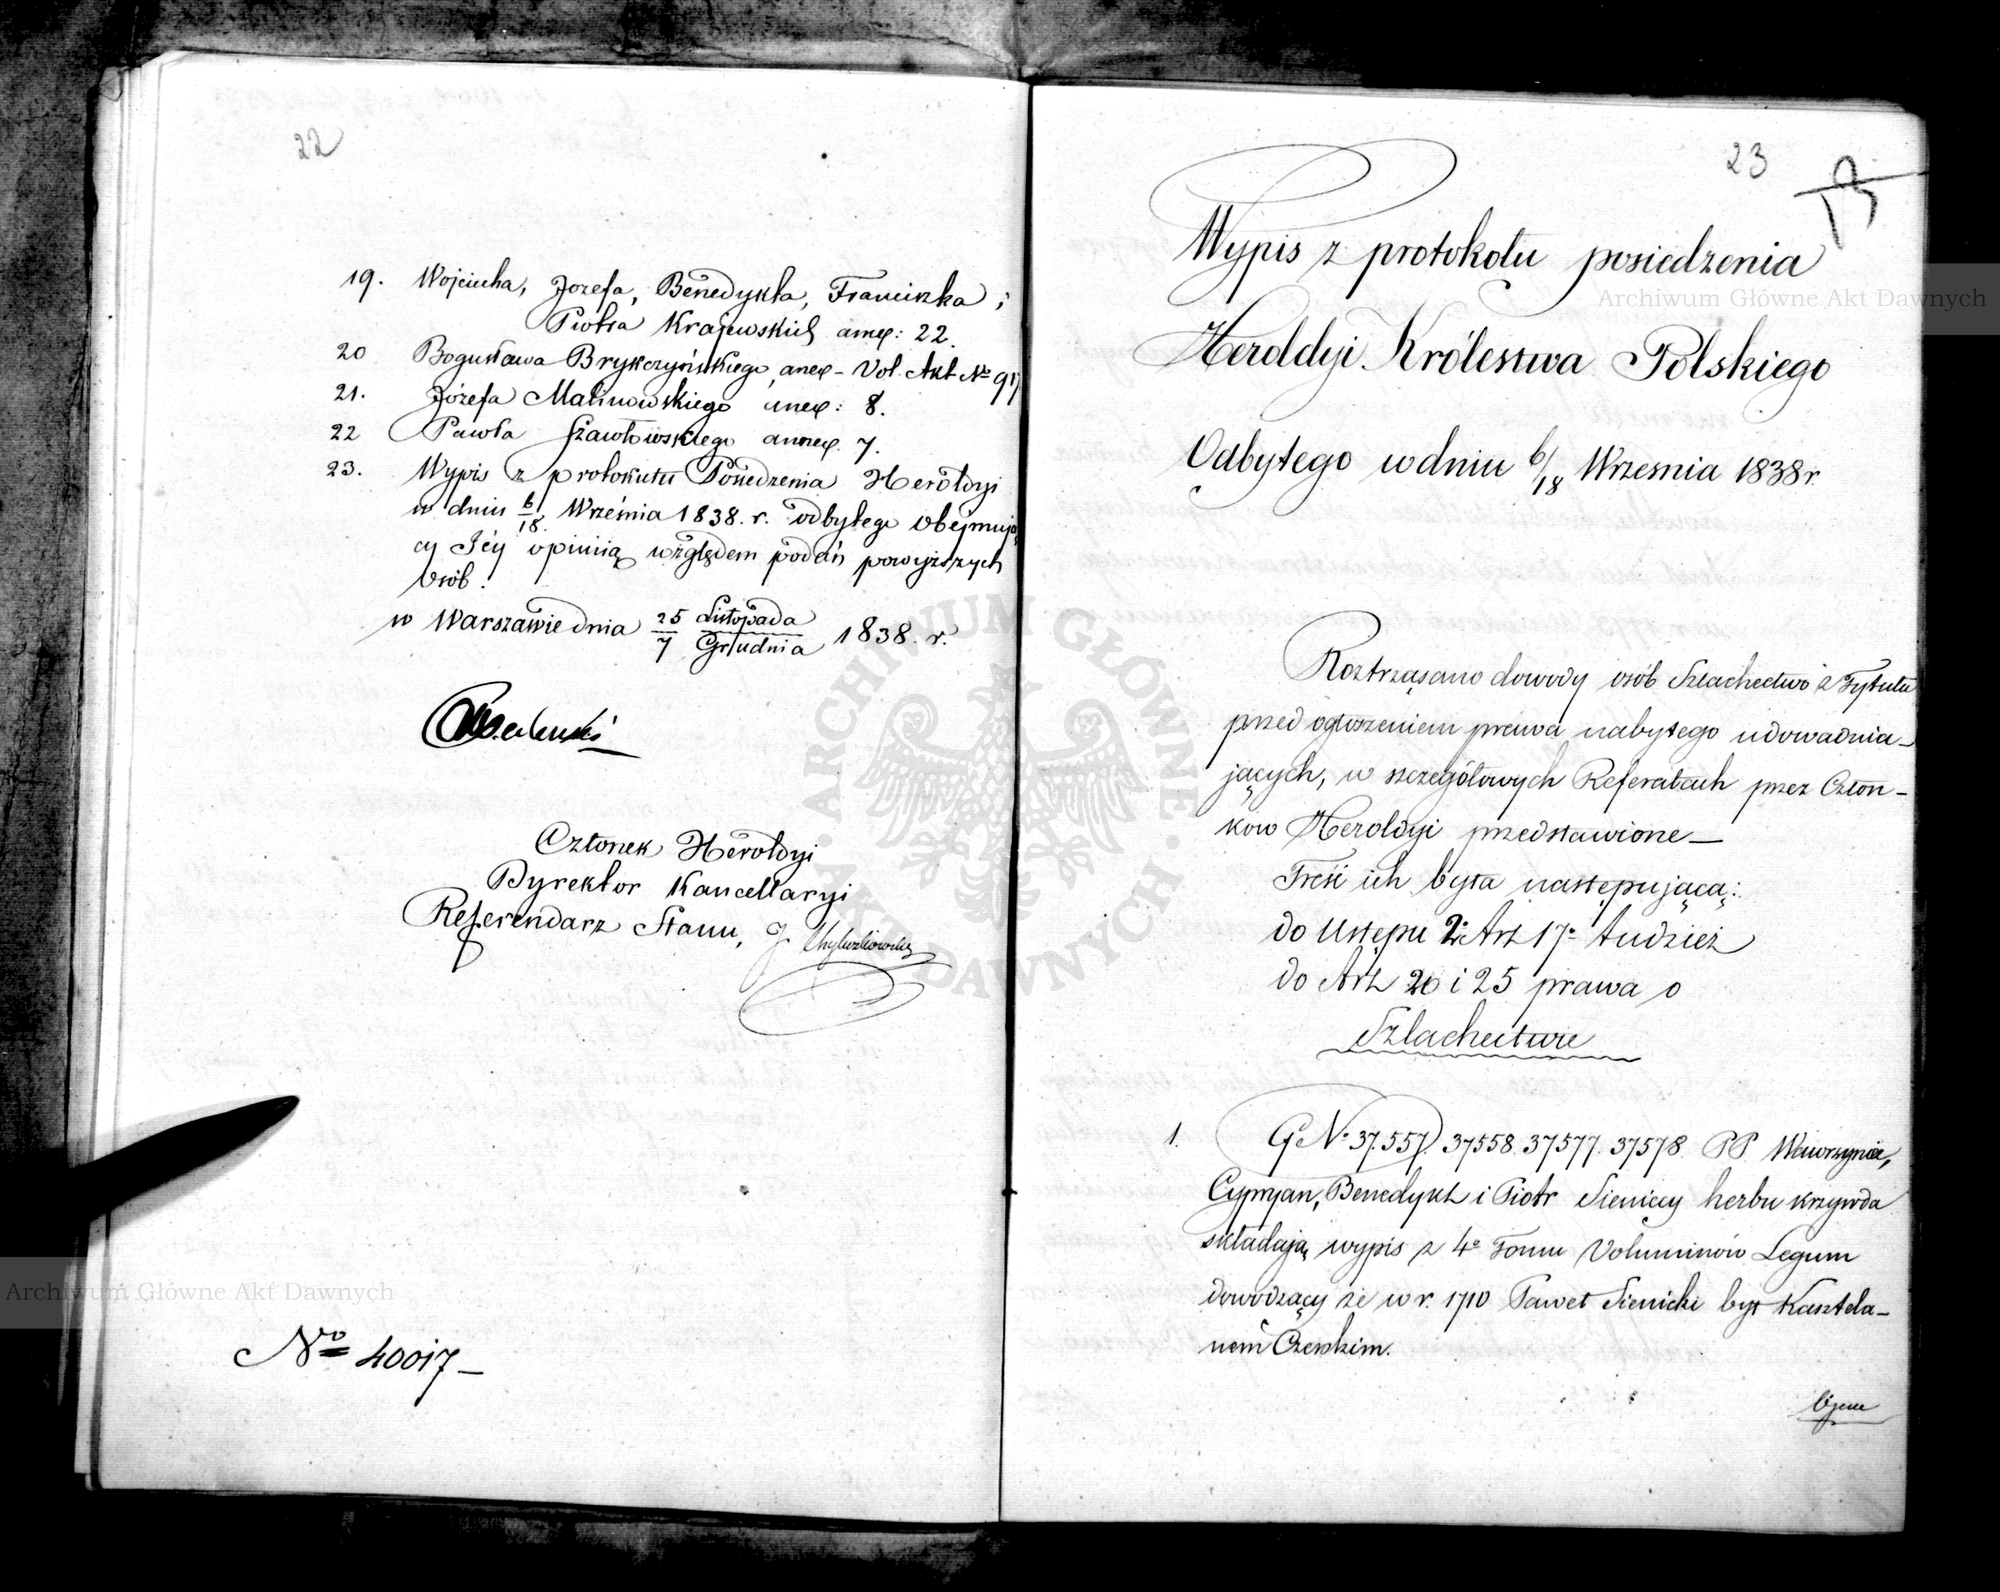 22
19. Wojciecha, Jozefa, Benedykta, Franciszka i
Piotra Krajewskich anex: 22.
20 Bogusława Brykczyńskiego, anex - Vol. Akt No 917
21. Józefa Malinowskiego anex: 8.
22 Pawła Szawłowskiego annex. 7.
23. Wypis z protokułu Posiedzenia Heroldyi
w dniu 6/18. Września 1838. r. odbytego obejmują
cy Jéy opinią względem podań powyższych
osób.
w Warszawie dnia 25/7 Listopada/Grudnia 1838. r.
Członek Heroldyi
Dyrektor Kancellaryi
Referendarz Stanu, J.
No 40017 -
23
Wypis z protokołu posiedzenia
Heroldyi Królestwa Polskiego
Odbytego w dniu 6/18 Wrzesnia 1838 r.
Roztrząsano dowody osób Szlachectwo z Tytułu
przed ogłoszeniem prawa nabytego udowadnia-
jących, w szczegółowych Referatach przez Człon-
ków Heroldyi przedstawione -
Treść ich była następująca:
do Ustępu 2. Art 17o tudzież
do Art 20 i 25 prawa o
Szlachectwie
1. G No 37.557. 37558. 37577. 37578. PP. Wawrzyniec,
Cypryan, Benedykt i Piotr Sieniccy herbu Krzywda
składają wypis z 4o Tomu Voluminów Legum
dowodzący że w r. 1710 Paweł Sienicki był Kasztela-
nem Czerskim.
Archiwum Główne Akt Dawnych
Archiwum Główne Akt Dawnych
ARCHIWUM GŁÓWNE AKT DAWNYCH